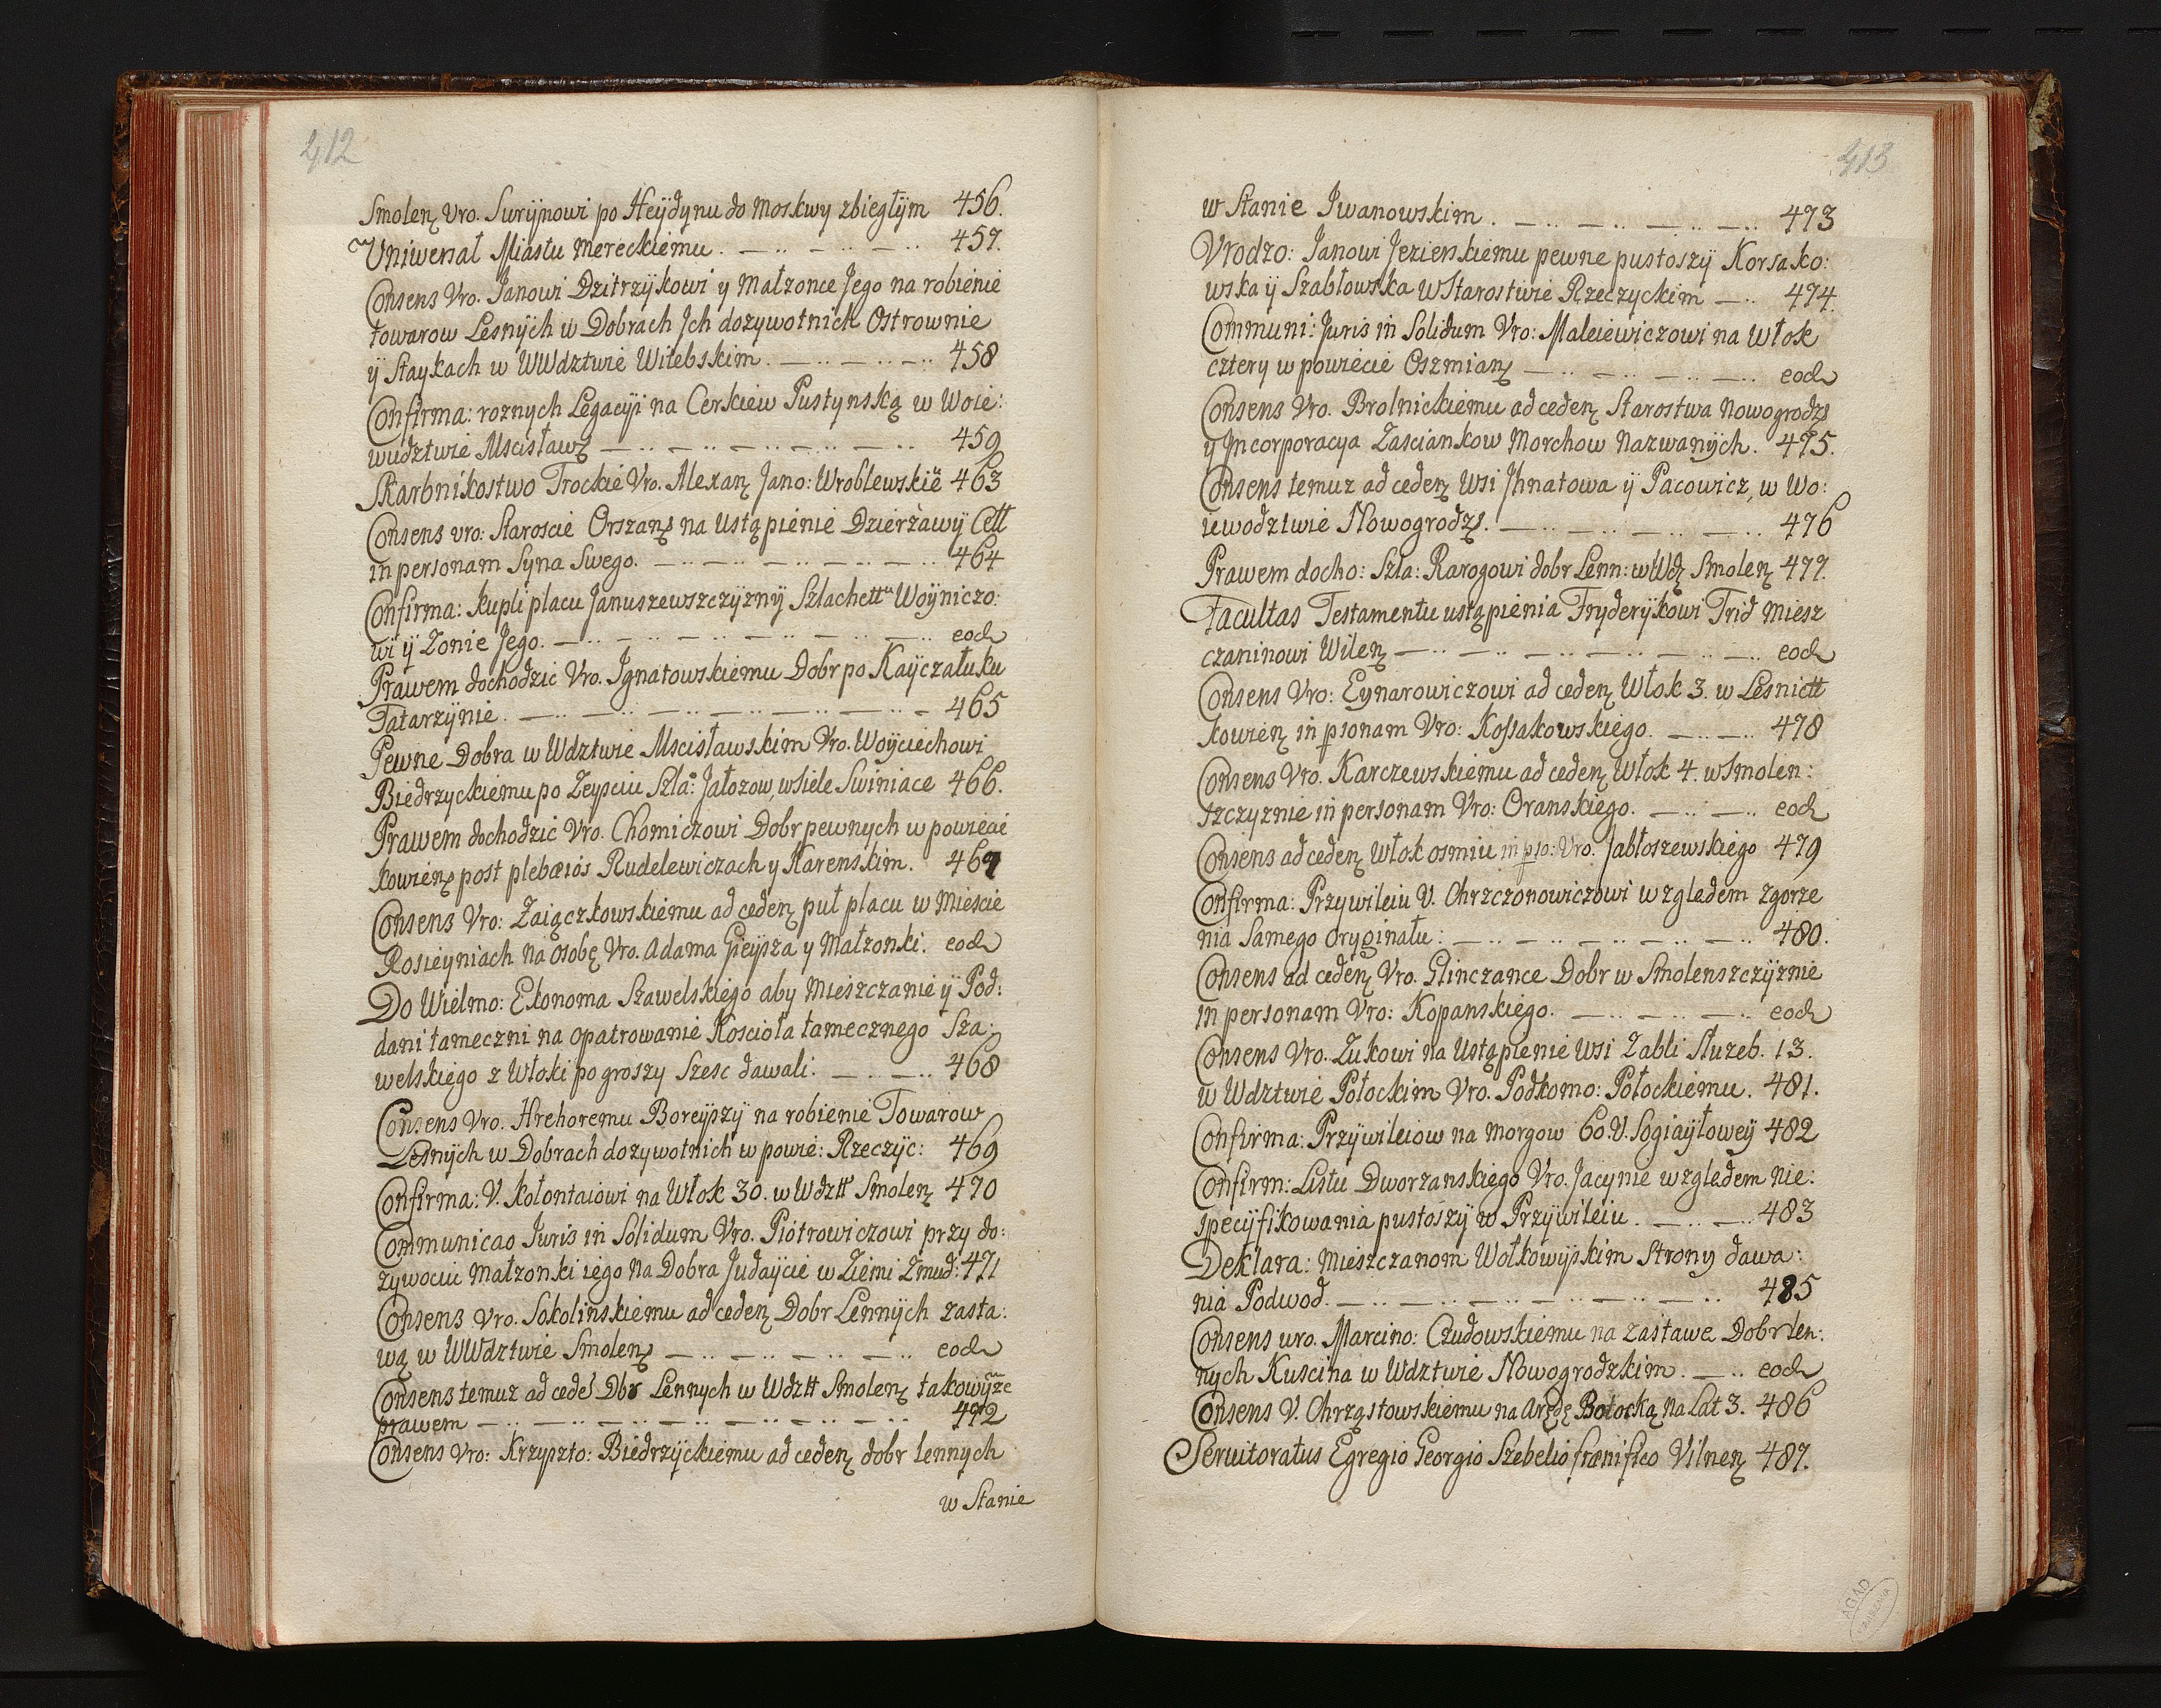 412
Smolen̨ Vro. Surÿnowi po Heÿdÿnu do Moskwy zbiegłÿm 456.
Uniwersał Miastu Mereckiemu. — .. — .. — .. 457.
Consens Vro. Janowi Dzitrzÿkowi y Małzonce Jego na robienie
towarow Lesnÿch w Dobrach Jch dozywotnich Ostrownie
ÿ Staykach w WWdztwie Witebskim. — .. — .. — .. 458
Confirma: roznych Legacÿi na Cerkiew Pustynską w Woie:
wudztwie Mscisławs — .. — .. — .. — .. — .. 459
Skarbnikostwo Trockie Vro. Alexan Jano: Wroblewskie 463
Consens vro: Staroscie Orszans na Ustąpienie Dzierżawÿ Cett
in personam Syna Swego. — .. — .. — .. — .. — .. 464
Confirma: kupli placu Januszewszczÿznÿ Szlachett Woÿniczo:
wi ÿ Zonie Jego. — .. — .. — .. — .. — .. eod
Prawem dochodzic Vro. Jgnatowskiemu Dobr po Kaÿczałuku
Tatarzÿnie. — .. — .. — .. — .. — .. — 465
Pewne Dobra w Wdztwie Mscisławskim Vro. Woÿciechowi
Biedrzyckiemu po Zeysciu Szla: Jałozow, w siele Swiniace 466.
Prawem dochodzic Vro. Chomiczowi Dobr pewnych w powiecie
kowiens post plebæios Rudelewiczach y Karenskim. 467
Consens Vro: Zaiączkowskiemu ad ceden pul placu w Miescie
Rosieÿniach na osobę Vro. Adama Gieÿsza y Małzonki. eod
Do Wielmo: Ekonoma Szawelskiego aby Mieszczanie ÿ Pod:
dani tameczni na opatrowanie Koscioła tamecznego Sza:
welskiego z Włoki po groszy Szesc dawali: — .. — .. 468
Consens Vro. Hrehoremu Boreÿszÿ na robienie Towarow
Lesnÿch w Dobrach dozywotnich w powie: Rzeczÿc: 469
Confirma: V. Kołontaiowi na Włok 30. w Wdztt Smolen 470
Communicao Juris in Solidum Vro. Piotrowiczowi przy do:
zywociu Małzonki iego na Dobra Judaÿcie w Ziemi Zmud: 471
Consens Vro. Sokolinskiemu ad ceden Dobr Lennÿch zasta:
wą w WWdztwie Smolens — .. — .. — .. — .. eod
Consens temuz ad cede Dbr Lennych w Wdztt Smolen takowÿze
prawem — .. — .. — .. — .. — .. — .. 472
Consens Vro: Krzyszto: Biedrzÿckiemu ad ceden dobr lennych
w Stanie
413
w Stanie Jwanowskim. — .. — .. — .. — .. 473
Vrodzo: Janowi Jezierskiemu pewne pustoszÿ Korsako:
wska ÿ Szabłowska w Starostwie Rzeczyckim — .. 474.
Communi: Juris in Solidum Vro: Maleiewiczowi na Włok
cztery w powiecie Oszmians — .. — .. — .. — .. eod
Consens Vro. Brolnickiemu ad ceden Starostwa Nowogrodzs
y Jncorporacya Zasciankow Morchow nazwanÿch. 475.
Consens temuz ad ceden Wsi Jhnatowa ÿ Pacowicz, w Wo:
iewodztwie Nowogrodzs. — .. — .. — .. — .. 476
Prawem docho: Szla: Rarogowi dobr Lenn: w Wdz Smolen 477.
Facultas Testamentu ustąpienia Frÿderÿkowi Trid Miesz
czaninowi Wilen — .. — .. — .. — .. — .. eod
Consens Vro: Eynarowiczowi ad ceden Włok 3. w Lesnictt
kowien in psonam Vro: Kossakowskiego. — .. — .. 478
Consens Vro. Karczewskiemu ad ceden Włok 4. w Smolen:
szczyznie in personam Vro: Oranskiego. — .. — .. eod
Consens ad ceden Włok osmiu in pso: Vro. Jabłoszewskiego 479
Confirma: Przywileiu V. Chrzczonowiczowi względem zgorze
nia Samego oryginału: — .. — .. — .. — .. 480.
Consens ad ceden Vro. Glinczance Dobr w Smolenszczÿznie
in personam Vro: Kopanskiego. — .. — .. — .. eod
Consens Vro. Zukowi na Ustąpienie Wsi Zabli Słuzeb. 13.
w Wdztwie Połockim Vro. Podkomo: Połockiemu. 481.
Confirma: Przÿwileiow na morgow 60. V. Sogiaÿłoweÿ 482
Confirm: Listu Dworzanskiego Vro. Jacynie względem nie:
specÿfikowania pustoszÿ w Przÿwileiu. — .. — .. 483
Deklara: Mieszczanom Wołkowÿskim Strony dawa:
nia Podwod. — .. — .. — .. — .. — .. 485
Consens uro. Marcino: Czudowskiemu na zastawe Dobr len:
nych Kuscina w Wdztwie Nowogrodzkim. — .. eod
Consens V. Chrząstowskiemu na Arędę Botocką na Lat 3. 486
Seruitoratus Egregio Georgio Szebelio frænifico Vilnen 487.
AGAD
WARSZAWA